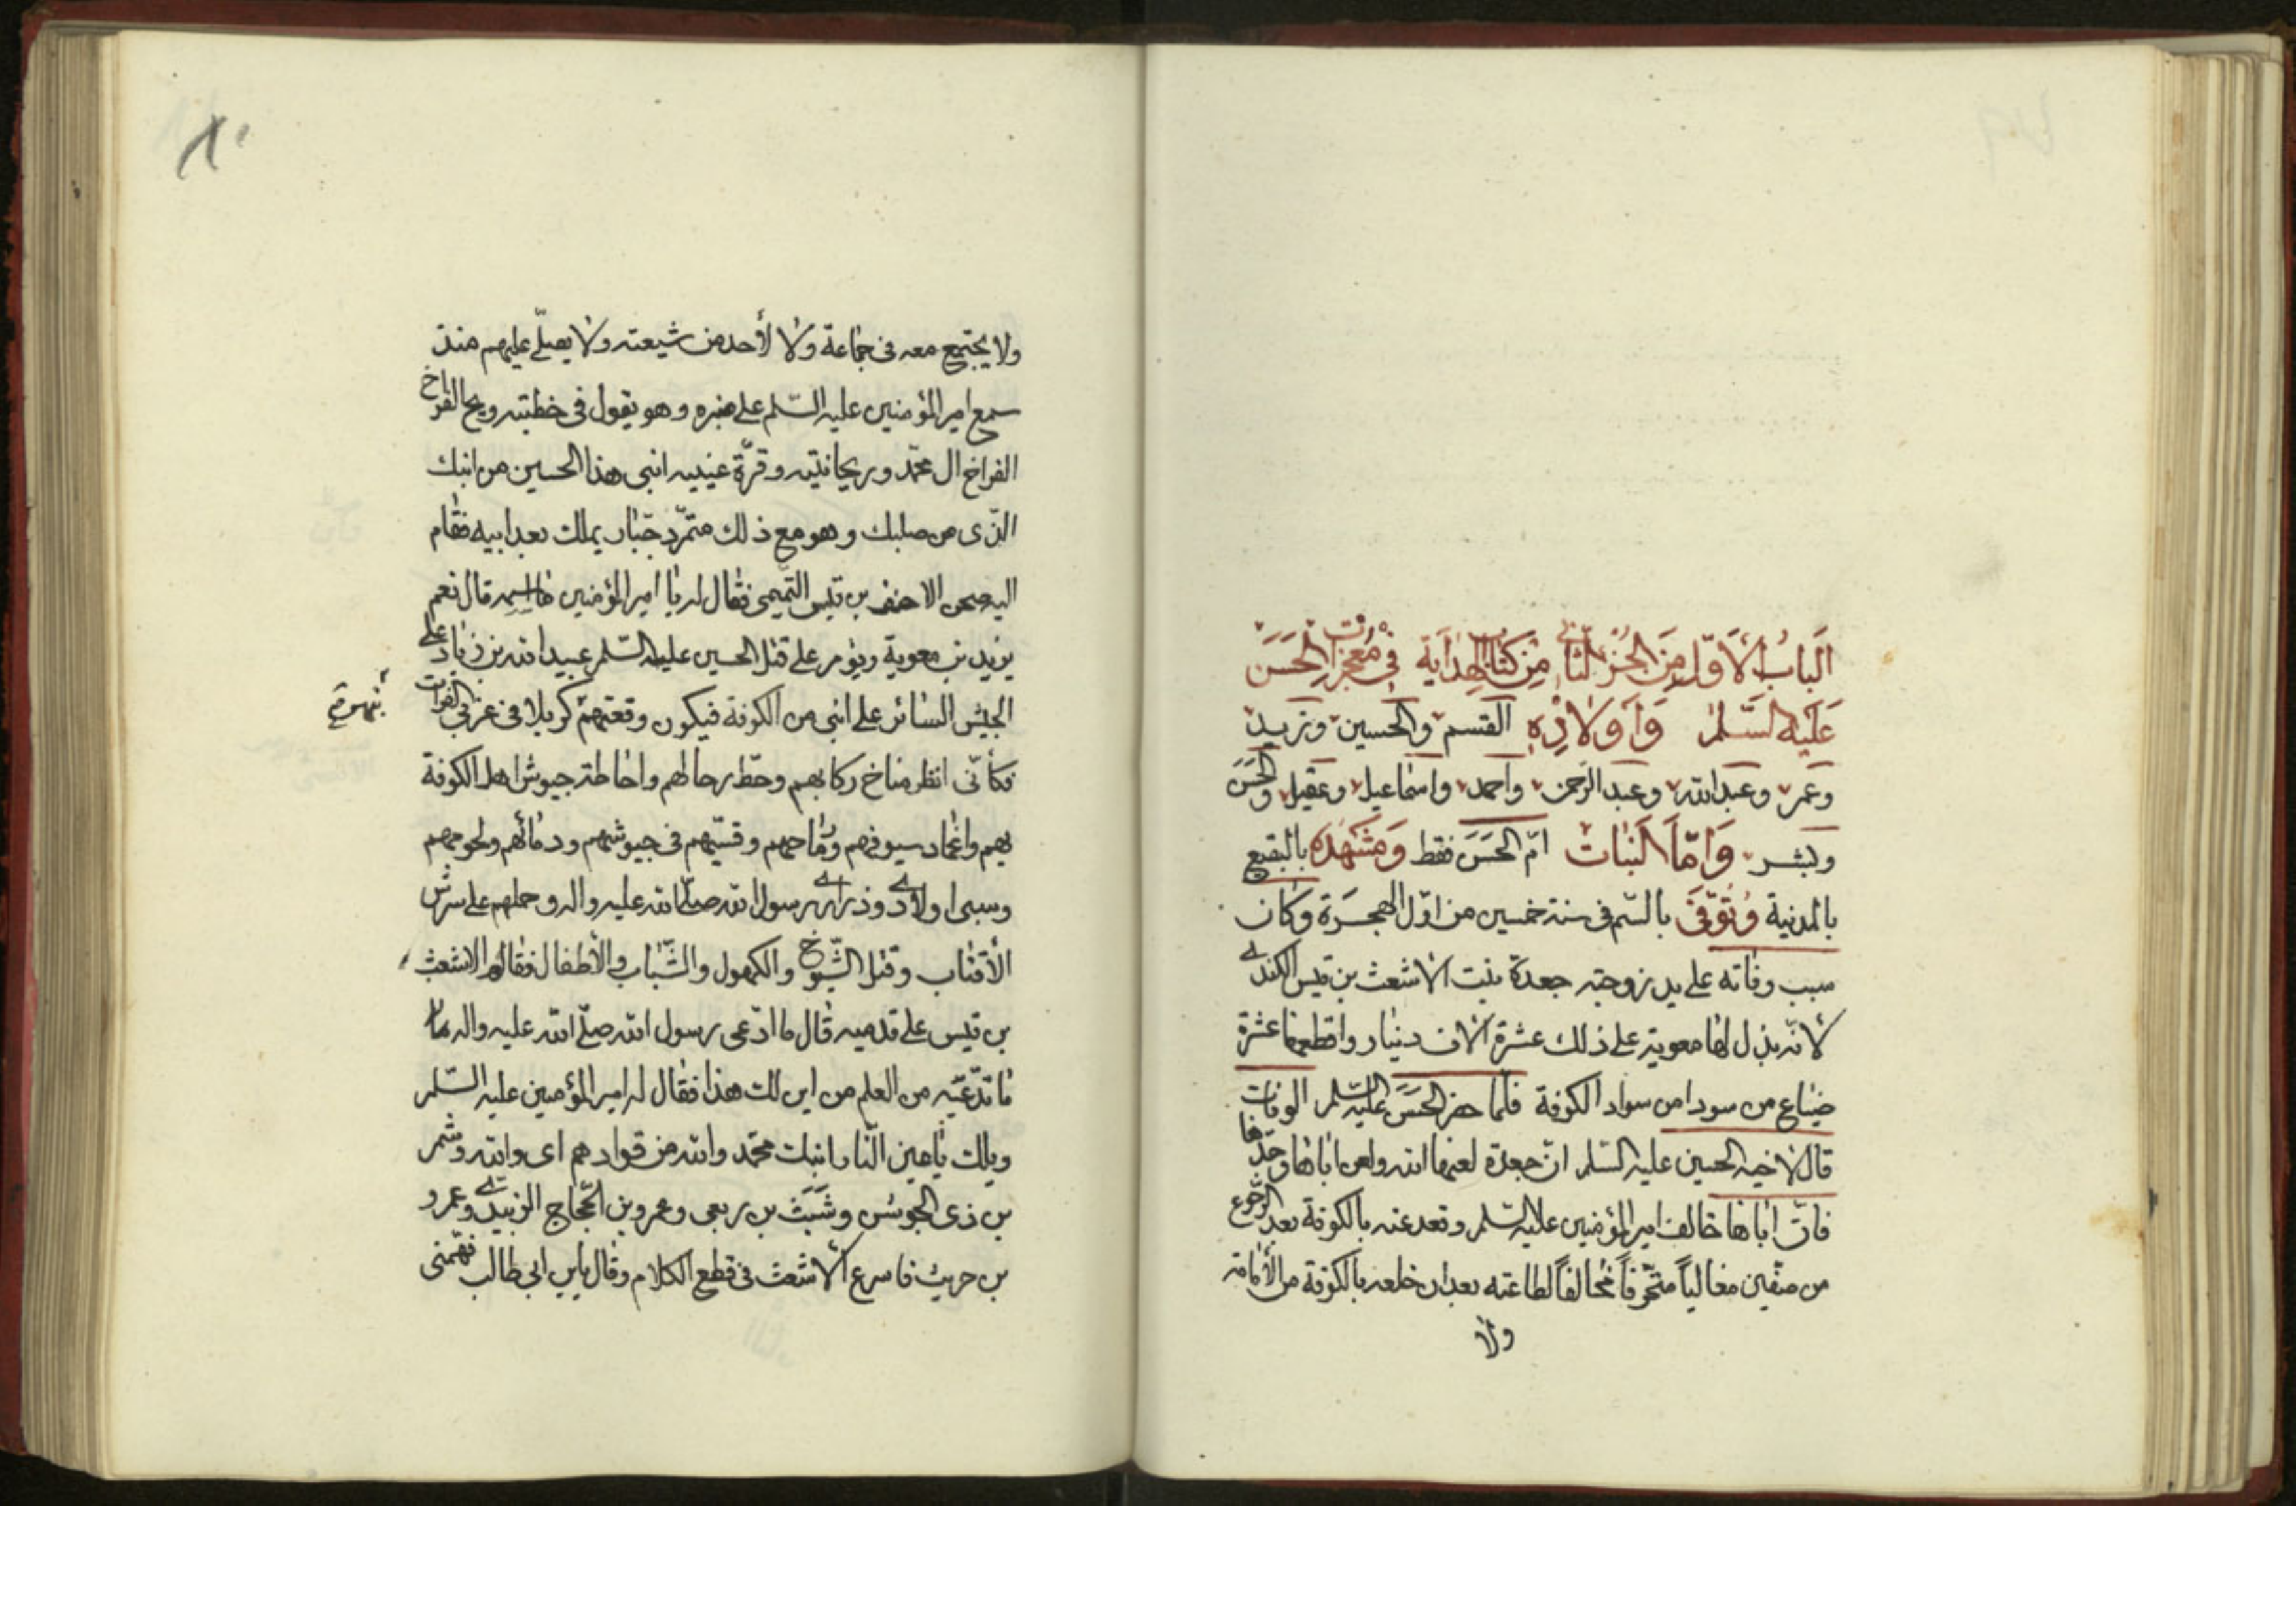 اَلبابُ الأَوّل مِنَ الجُزءِ الثّانِي مِن كتابِ الهِدَايَة فِي مُعجِزاتِ الحَسَن
عَلَيهِ السَّلَم وَاَولادِهِ القسم والحسين وزيد
وعمر وعبدالله وعبدالرحمن واحمد واسماعيل وعقيل والحَسَن
وبشر وَامّا البَنات امّ الحَسَن فقط وَمَشهَدُهُ بالبقيع
بالمدنية وُتُوفّيَ بالسّم فى سنة خمسين من اوّل الهجرَة وكان
سبب وفاته على يد زوجته جعدة بنت الاشعث بن قيس الكندى
لانّه بذل لها معوية على ذلك عشرة الاف دينار واقطعها عشرة
ضياع من سودا من سواد الكوفة فلما حضر الحَسَنَ عليه السّلم الوفات
قال لاخيه الحسين عليه السّلم انّ جعدة لعنها الله ولعن اباها وجدّها
فانّ اباها خالف امير المؤمنين عليه السّلم وقعد عنه بالكوفة بعد الرّجوع
من صفّين مغالياً منحرفاً مخالفاً لطاعته بعد ان خلعه بالكوفة من الأمامة
ولا
٨٠
ولا يجتمع معه فى جماعة ولا لأحد من شيعته ولا يصلّى عليهم منذ
سمع امير المؤمنين عليه السّلم على منبره وهو يقول فى خطبته ويح الفراخ
الفراخ ال محمّد وريحانيته وقرّة عينيه ابنى هذا الحسين من ابنك
الذّى من صلبك وهو مع ذلك متمرّد جبّار يملك بعد ابيه فقام
اليه صحن الاحنف بن قيس التّميمى فقال له يا امير المؤمنين ما اسمه قال نعم
يزيد بن معوية ويؤمر على قتل الحسين عليه السّلم عبيدالله بن زياد على
الجيش السائر على ابنى من الكوفة فيكون وقعتهم كربلا فى غربى الفرات
فكأنّى انظر مناخ ركابهم وحطّ رحالهم واحاطة جيوش اهل الكوفة
بهم واغماد سيوفهم ورماحهم وقسيّهم فى جيوشهم ودمائهم ولحومهم
وسبى اولادى وذرارى رسول الله صلّى الله عليه واله وحملهم على شرس
الأقتاب وقتل الشّيوخ والكهول والشّباب والأطفال فقام الاشعث
بن قيس على قدميه قال ما ادّعى رسول الله صلّى الله عليه واله ما
ما تدّعيه من العلم من اين لك هذا فقال له امير المؤمنين عليه السّلم
ويلك يا عين النّار ابنك محمّد والله من قوادهم اى والله وشمر
بن ذى الجوشن وشَبَث بن ربعى وعمرو بن الحجّاج الزبيدى وعمرو
بن حريث فاسرع الاشعث فى قطع الكلام وقال يابن ابى طالب فهّمنى